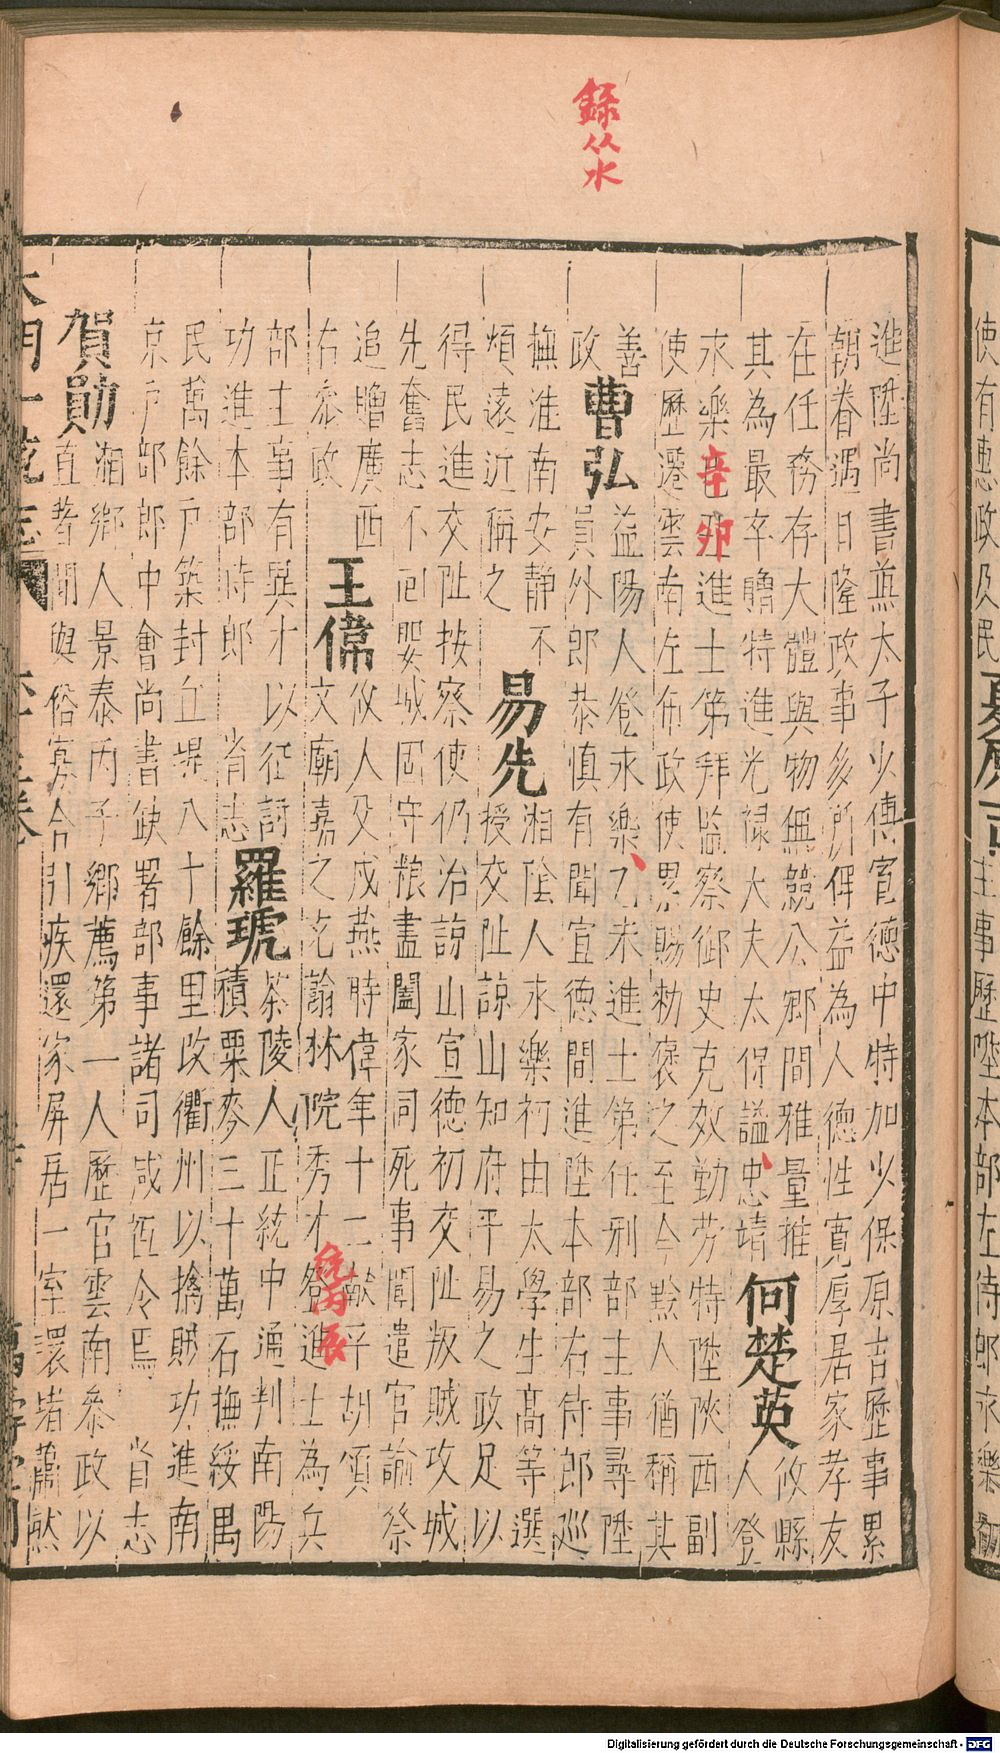 使有惠政及民 夏原吉 主事歷陞本部左侍郎永樂初
錄從水
進陞尚書兼太子少傅宣德中特加少保原吉歷事累
朝眷遇日隆政事多所俾益為人德性寬厚居家孝友
在任務存大體與物無競公卿間雅量推
其為最卒贈特進光祿大夫太保謚忠靖
何楚英
攸縣
人登
永樂辛卯進士第拜監察御史克效勤勞特陞陝西副
使歷遷雲南左布政使累賜勑褒之至今黔人猶稱其
善
政
曹弘
益陽人登永樂乙未進士第任刑部主事尋陞
員外郎恭慎有聞宣德間進陞本部右侍郎巡
撫淮南安靜不
煩遠近稱之
易先
湘陰人永樂初由太學生高等選
授交阯諒山知府平易之政足以
得民進交阯按察使仍治諒山宣德初交阯叛賊攻城
先奮志不回嬰城固守粮盡闔家同死事聞遣官諭祭
追贈廣西
右參政
王偉
攸人父戍燕時偉年十二獻平胡頌
文廟嘉之送翰林院秀才登進士為兵
統丙辰
部主事有異才以征討
功進本部侍郎 省志
羅琥
茶陵人正統中通判南陽
積粟麥三十萬石撫綏
民萬餘戶築封丘堤八十餘里改衢州以擒賊功進南
京戶部郎中會尚書缺署部事諸司咸令焉 省志
賀勛
湘鄉人景泰丙子鄉薦第一人歷官雲南參政以
直著聞與俗寡合引疾還家屏居一室環堵蕭然
大明一統志 萬壽堂刊
Digitalisierung gefördert durch die Deutsche Forschungsgemeinschaft - DFG